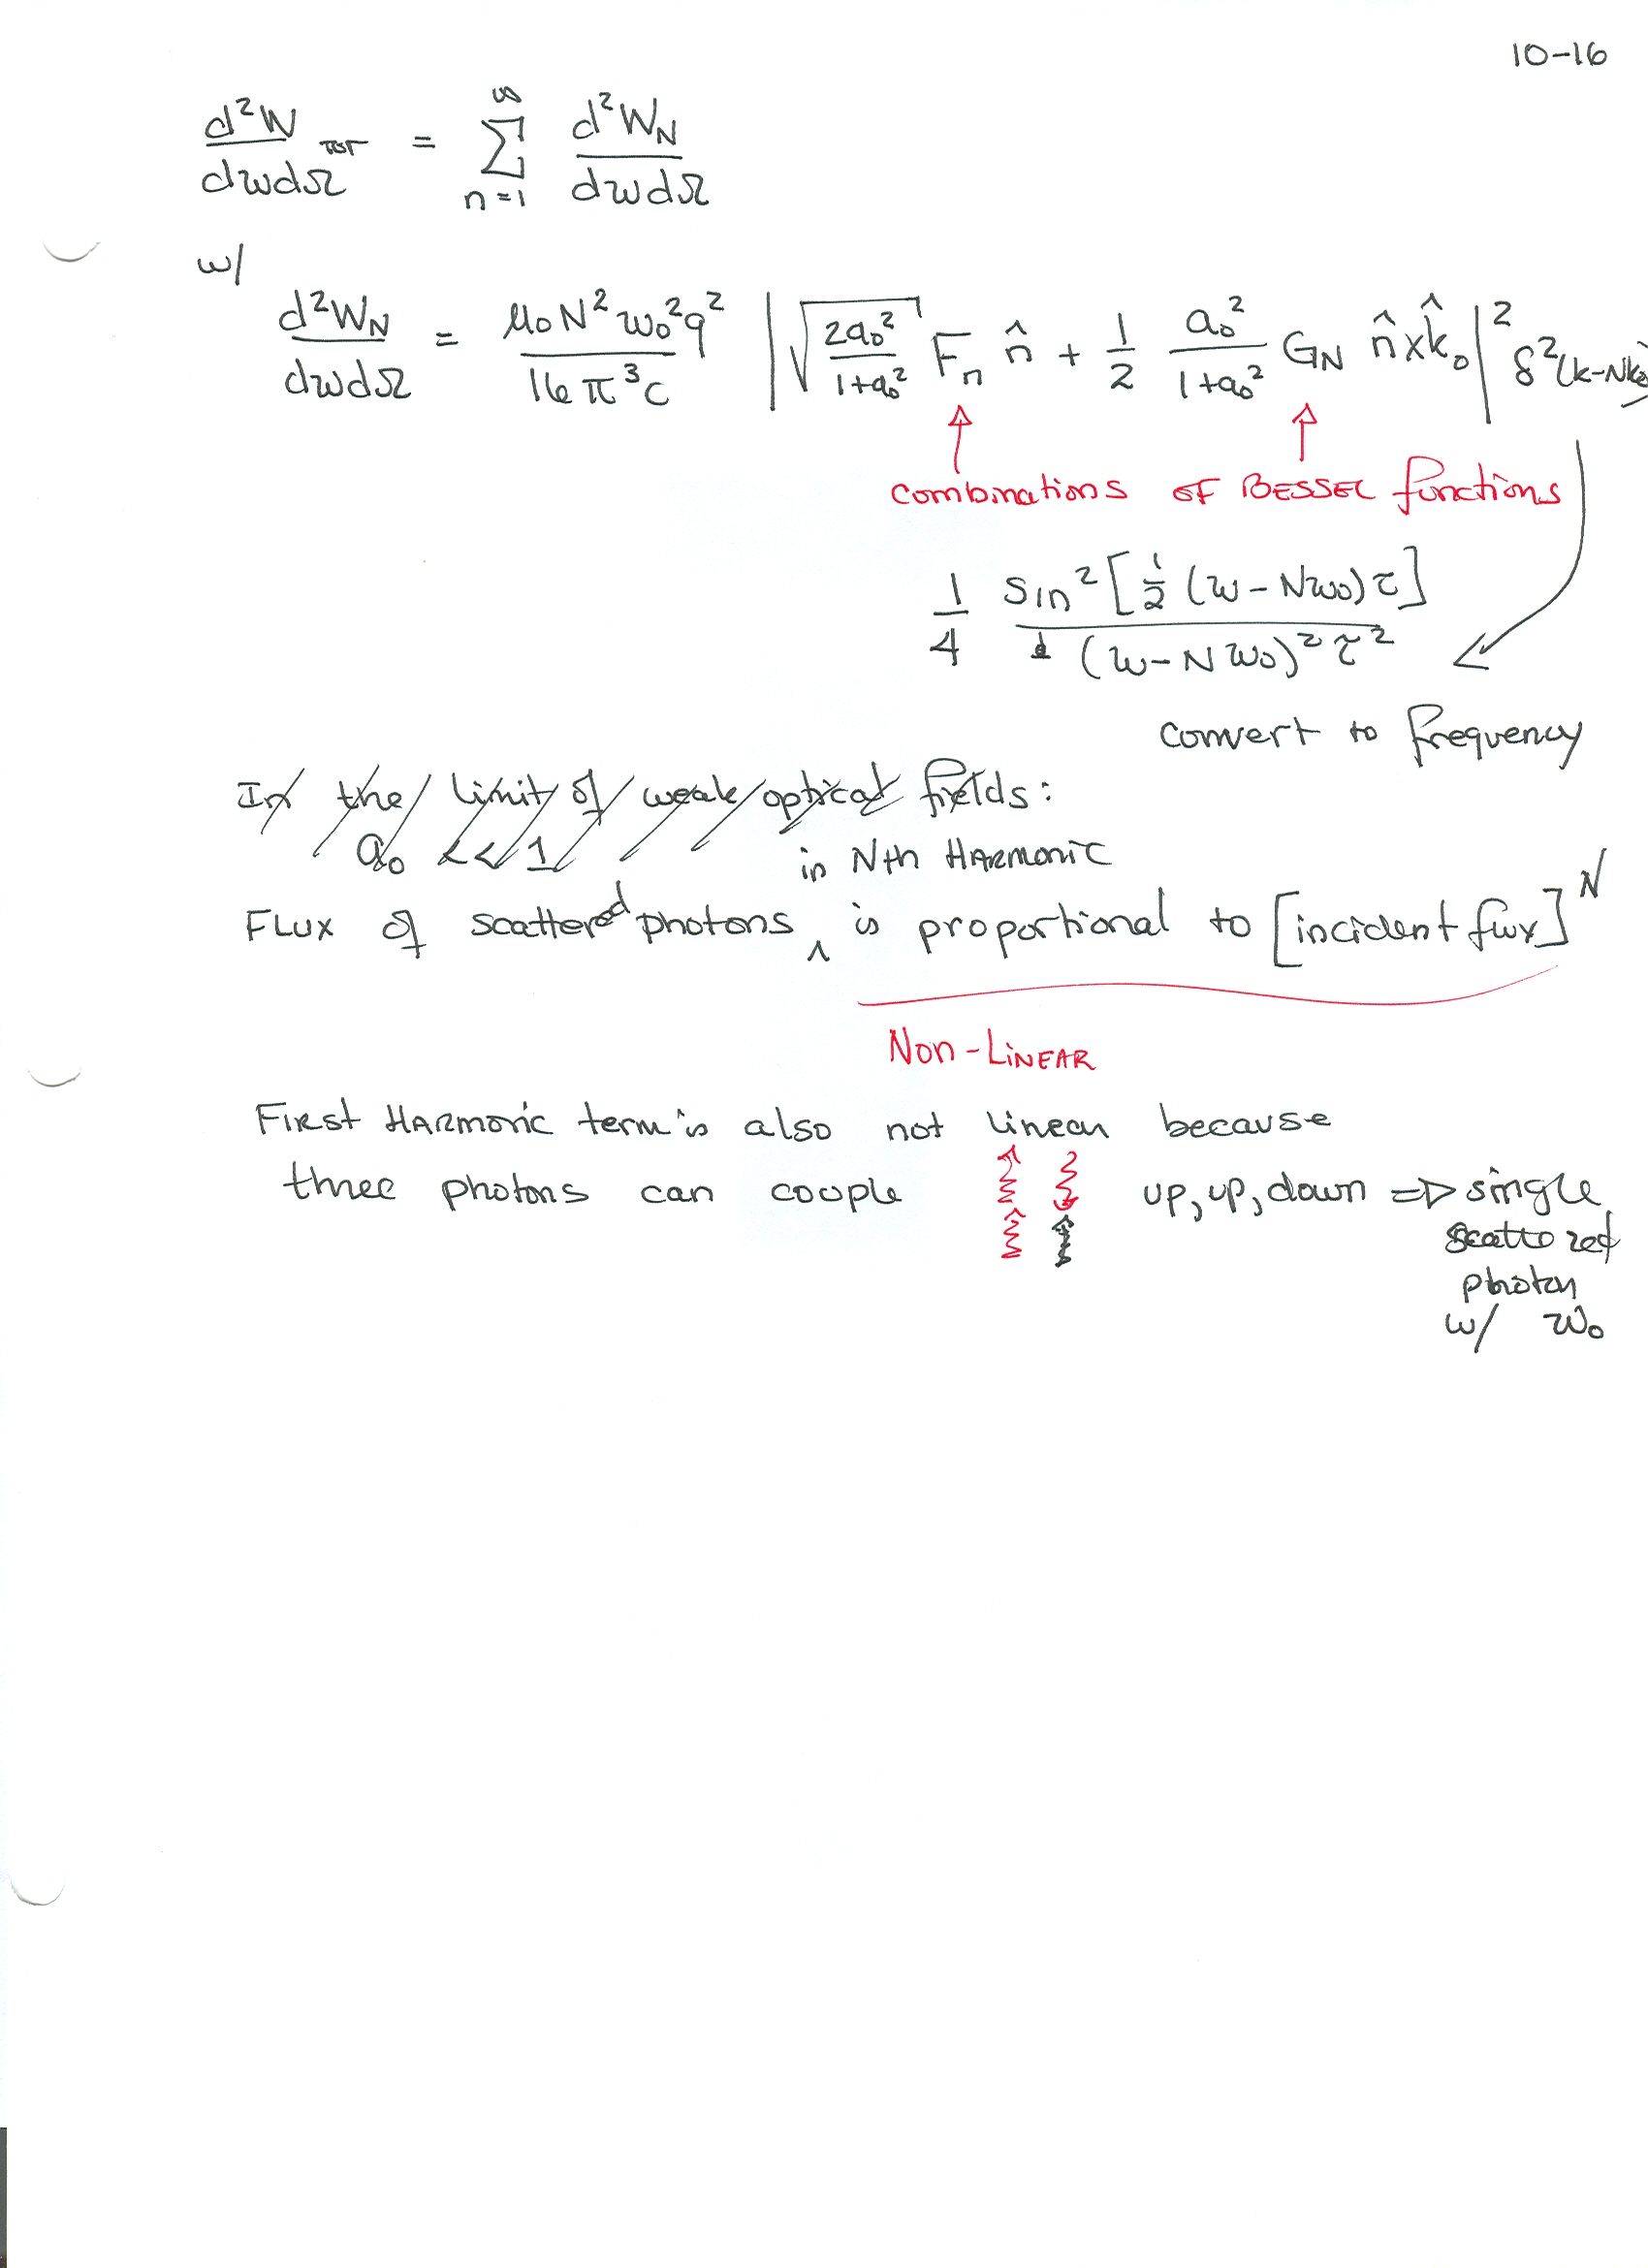 10-16
d²W/dωdΩ TOT = Σ_{n=1}^{∞} d²W_N/dωdΩ
w/
d²W_N/dωdΩ = μ₀N²ω₀²q²/16π³c |√(2a₀²/1+a₀²) F_n n̂ + 1/2 a₀²/1+a₀² G_N n̂×k̂₀|² δ²(k-Nk₀)
combinations of BESSEL functions
1/4 sin²[½(ω-Nω₀)τ]/(ω-Nω₀)²τ²
convert to frequency
In the limit of weak optical fields:
a₀ << 1
in Nth HARMONIC
FLUX of scattered photons ^ is proportional to [incident flux]^N
Non-LINEAR
First HARMONIC term is also not linear because
three photons can couple up, up, down ⇒ single
scattered
photon
w/ ω₀